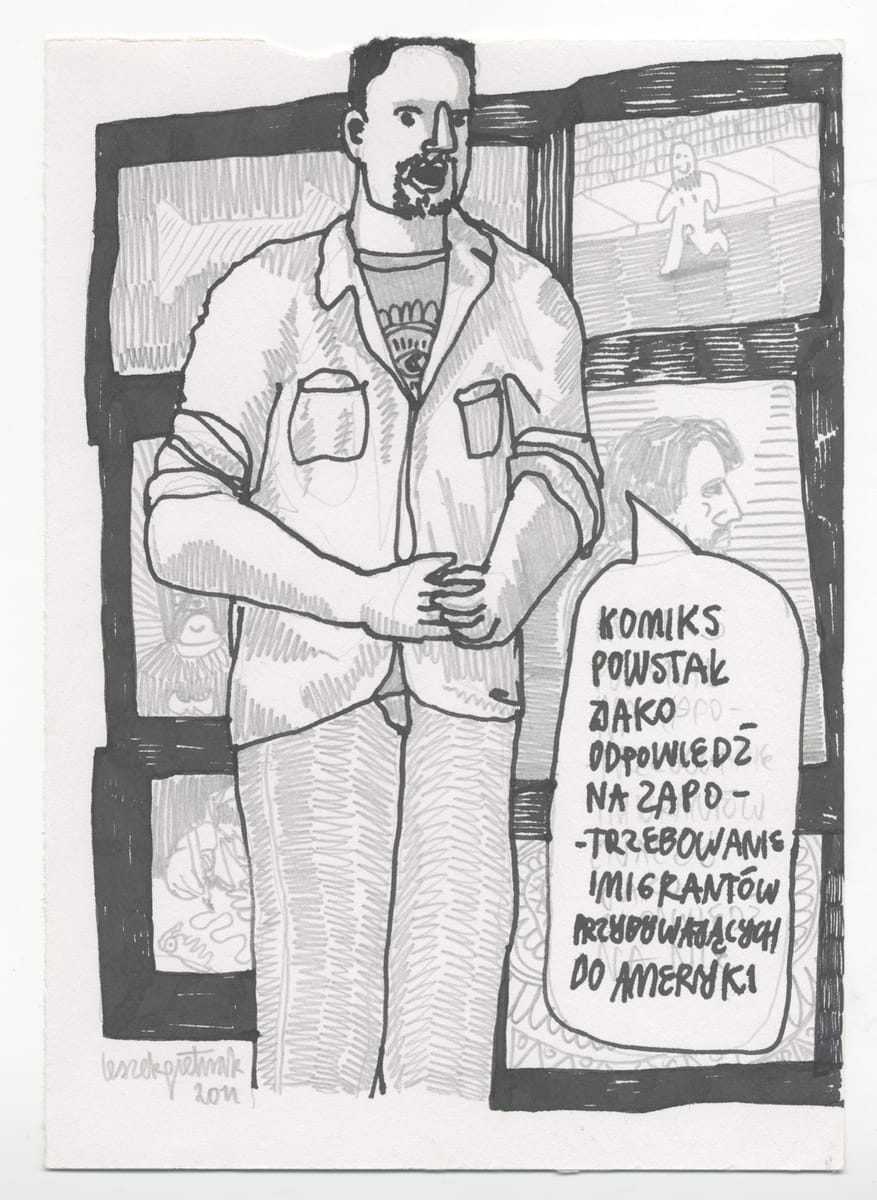 KOMIKS
POWSTAŁ
JAKO
ODPOWIEDŹ
NA ZAPO-
-TRZEBOWANIE
IMIGRANTÓW
PRZYBYWAJĄCYCH
DO AMERYKI
2011